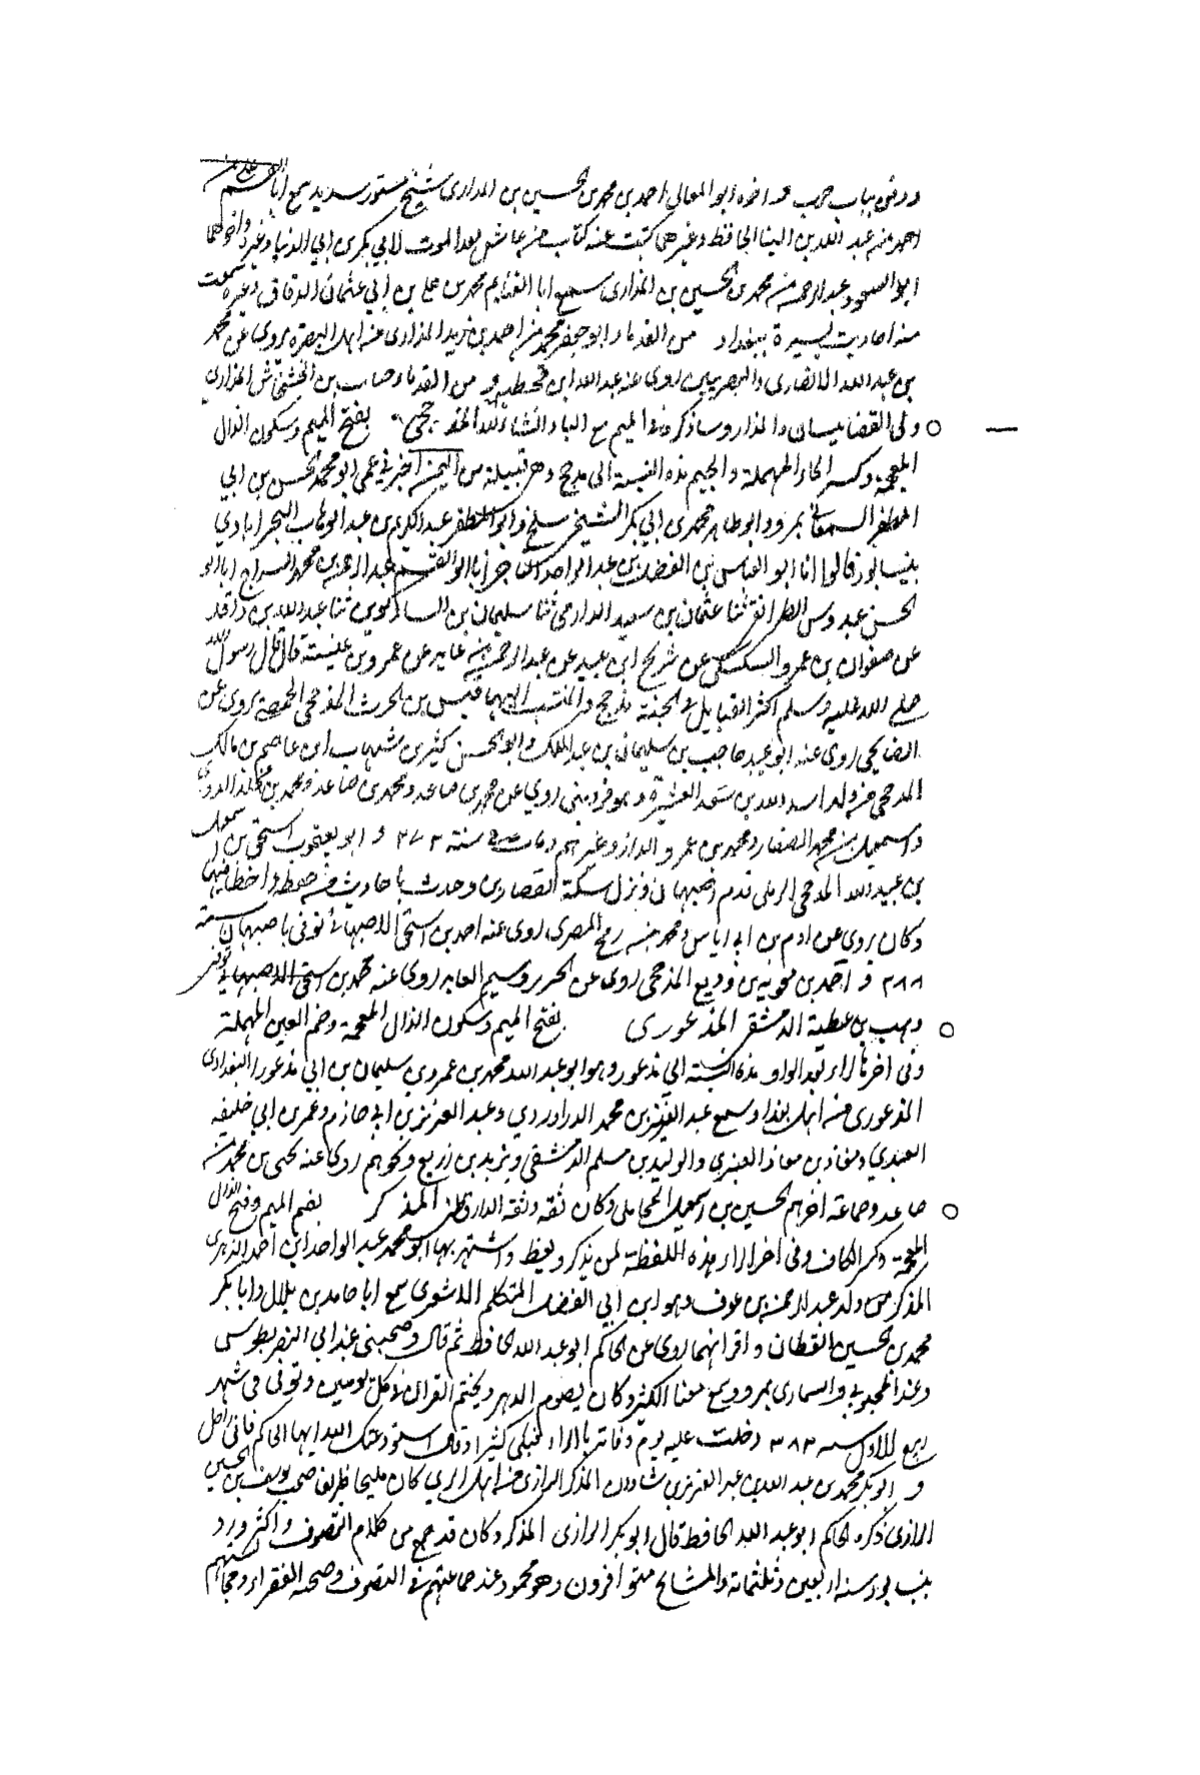 ودفن بباب حرب واخوه ابو المعالي احمد بن محمد بن الحسين بن المذاري شيخ مستور سديد سمع ابا القسم علي بن
احمد بن عبد الله بن البنا الحافظ وغيرهما كتبت عنه كتاب من عاش بعد الموت لابي بكر بن ابي الدنيا وغيره واخوهما
ابو السعود عبد الرحمن بن محمد بن الحسين بن المذاري سمع ابا الغنائم محمد بن علي بن ابي عثمان الدقاق وغيره سمعت
منه احاديث يسيرة ببغداد من القدماء ابو جعفر محمد بن احمد بن زيد المذاري من اهل البصرة يروي عن محمد
بن عبد الله الانصاري والبصريين روى عنه عبد الله ابن قحطبة ومن القدماء حساب بن الخشخاش المذاري
ولي القضا بميسان والمذار وساذكره في الميم مع الياء انشاء الله المذحجي بفتح الميم وسكون الذال
المعجمة وكسر الحاء المهملة والجيم هذه النسبة الى مذحج وهو قبيلة من اليمن اخبرني عمي ابو محمد الحسن بن ابي
المظفر السمعاني بمرو وابو طاهر محمد بن ابي بكر الشيخ بسلخ وابو المظفر عبد الكريم بن عبد الوهاب البحرابادي
بنيسابور قالوا انا ابو العباس بن الفضل بن عبد الواحد التاجر انا ابو القسم عبد الرحمن بن محمد السراج انا ابو
الحسن عبدوس الطرائفي ثنا عثمان بن سعيد الدارمي ثنا سليمان بن ثنا عبد الله بن واقد
عن صفوان بن عمرو السكسكي عن شريح ابن عبيد عن عبد الرحمن بن عايد عن عمرو بن عبسة قال قال رسول الله
صلى الله عليه وسلم اكثر القبايل في الجنة مذحج والمنتسب اليها قيس بن الحرث المذحجي الحمصي يروي عن
الصنابحي روى عنه ابو عبيد حاجب بن سليمان بن عبد الملك وابو الحسن كثير بن شهاب ابن عاصم بن مالك
المذحجي من ولد اسد الله بن سعد العشيرة وهو قزويني روى عن محمد بن صاعد ومحمد بن مخلد الدوري
واسمعيل بن محمد الصفار ومحمد بن عمرو الرزاز وغيرهم ومات في سنة ٣٧٣ و ابو يعقوب اسحق بن اسمعيل
بن عبد الله المذحجي الرملي قدم اصبهان ونزل سكة القصارين وحدث باحاديث من حفظه واخطا فيها
وكان يروي عن ادم بن ابي اياس ومحمد بن رمح المصري روى عنه احمد بن اسحق الاصبهاني توفى باصبهان سنة
٢٨٨ و احمد بن محويه بن وديع المذحجي روى عن الحر بن وسيم العابد روى عنه محمد بن اسحق الاصبهاني توفى
وهب بن عطية الدمشقي المذعوري بفتح الميم وسكون الذال المعجمة وضم العين المهملة
وفي اخرها الراء بعد الواو هذه النسبة الى مذعور وهو ابو عبد الله محمد بن عمرو بن سليمان بن ابي مذعور البغدادي
المذعوري من اهل بغداد سمع عبد العزيز بن محمد الدراوردي وعبد العزيز بن ابي حازم وعمر بن ابي خليفة
العبدي ومعاذ بن معاذ العنبري والوليد بن مسلم الدمشقي ويزيد بن زريع ونحوهم روى عنه يحيى بن محمد بن
صاعد وجماعة اخرهم الحسين بن اسمعيل المحاملي وكان ثقة وثقه الدارقطني المذكر بضم الميم وفتح الذال
المعجمة وكسر الكاف وفي اخر الراء هذه اللفظة لمن يذكر ويعظ واشتهر بها ابو محمد عبد الواحد ابن احمد الزهري
المذكر من ولد عبد الرحمن بن عوف وهو ابن ابي الفضل المتكلم الاشعري سمع ابا حامد بن بلال وابا بكر
محمد بن الحسين القطان واقرانهما روى عن الحاكم ابو عبد الله الحافظ ثم قال وصحبني عند ابي النضر بطوس
وعند المحبوبي والسياري بمرو وسمع معنا الكثير وكان يصوم الدهر ويختم القران في كل يومين وتوفى في شهر
ربيع الاول سنه ٣٨٢ دخلت عليه يوم وفاته فبكى كثيرا وقال استودعتك الله ايها الحاكم فاني راحل
و ابو بكر محمد بن عبد الله بن عبد العزيز بن شاذان المذكر الرازي من اهل الري كان مليحا ظريفا صحب يوسف بن الحسين
الرازي ذكره الحاكم ابو عبد الله الحافظ قال ابو بكر الرازي المذكر وكان قد جمع من كلام التصوف واكثر ورد
نيسابور سنه اربعين وثلثمائة والمشايخ متوافرون وهو محمود عند جماعتهم في التصوف وصحبة الفقراء ومجالستهم